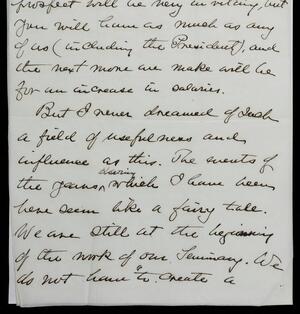 prospect will be very inviting, but
you will have as much as any
of us (including the President), and
the next move we make will be
for an increase in salaries.
But I never dreamed of such
a field of usefulness and
influence as this. The events of
the years during which I have been
here seem like a fairy tale.
We are still at the beginning
of the work of our Seminary. We
do not have "to create a